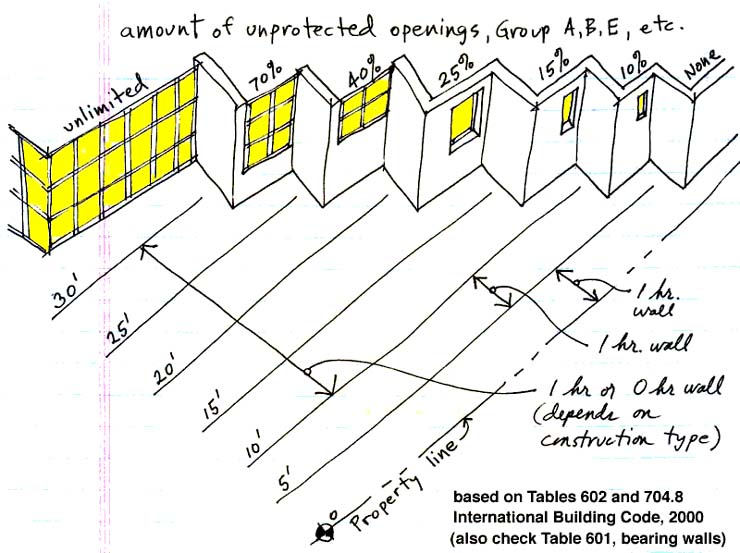 amount of unprotected openings, Group A,B,E, etc.
unlimited
70%
40%
25%
15%
10%
None
30'
25'
20'
15'
10'
5'
0
Property line
1 hr.
wall
1 hr. wall
1 hr or 0 hr wall
(depends on
construction type)
based on Tables 602 and 704.8
International Building Code, 2000
(also check Table 601, bearing walls)